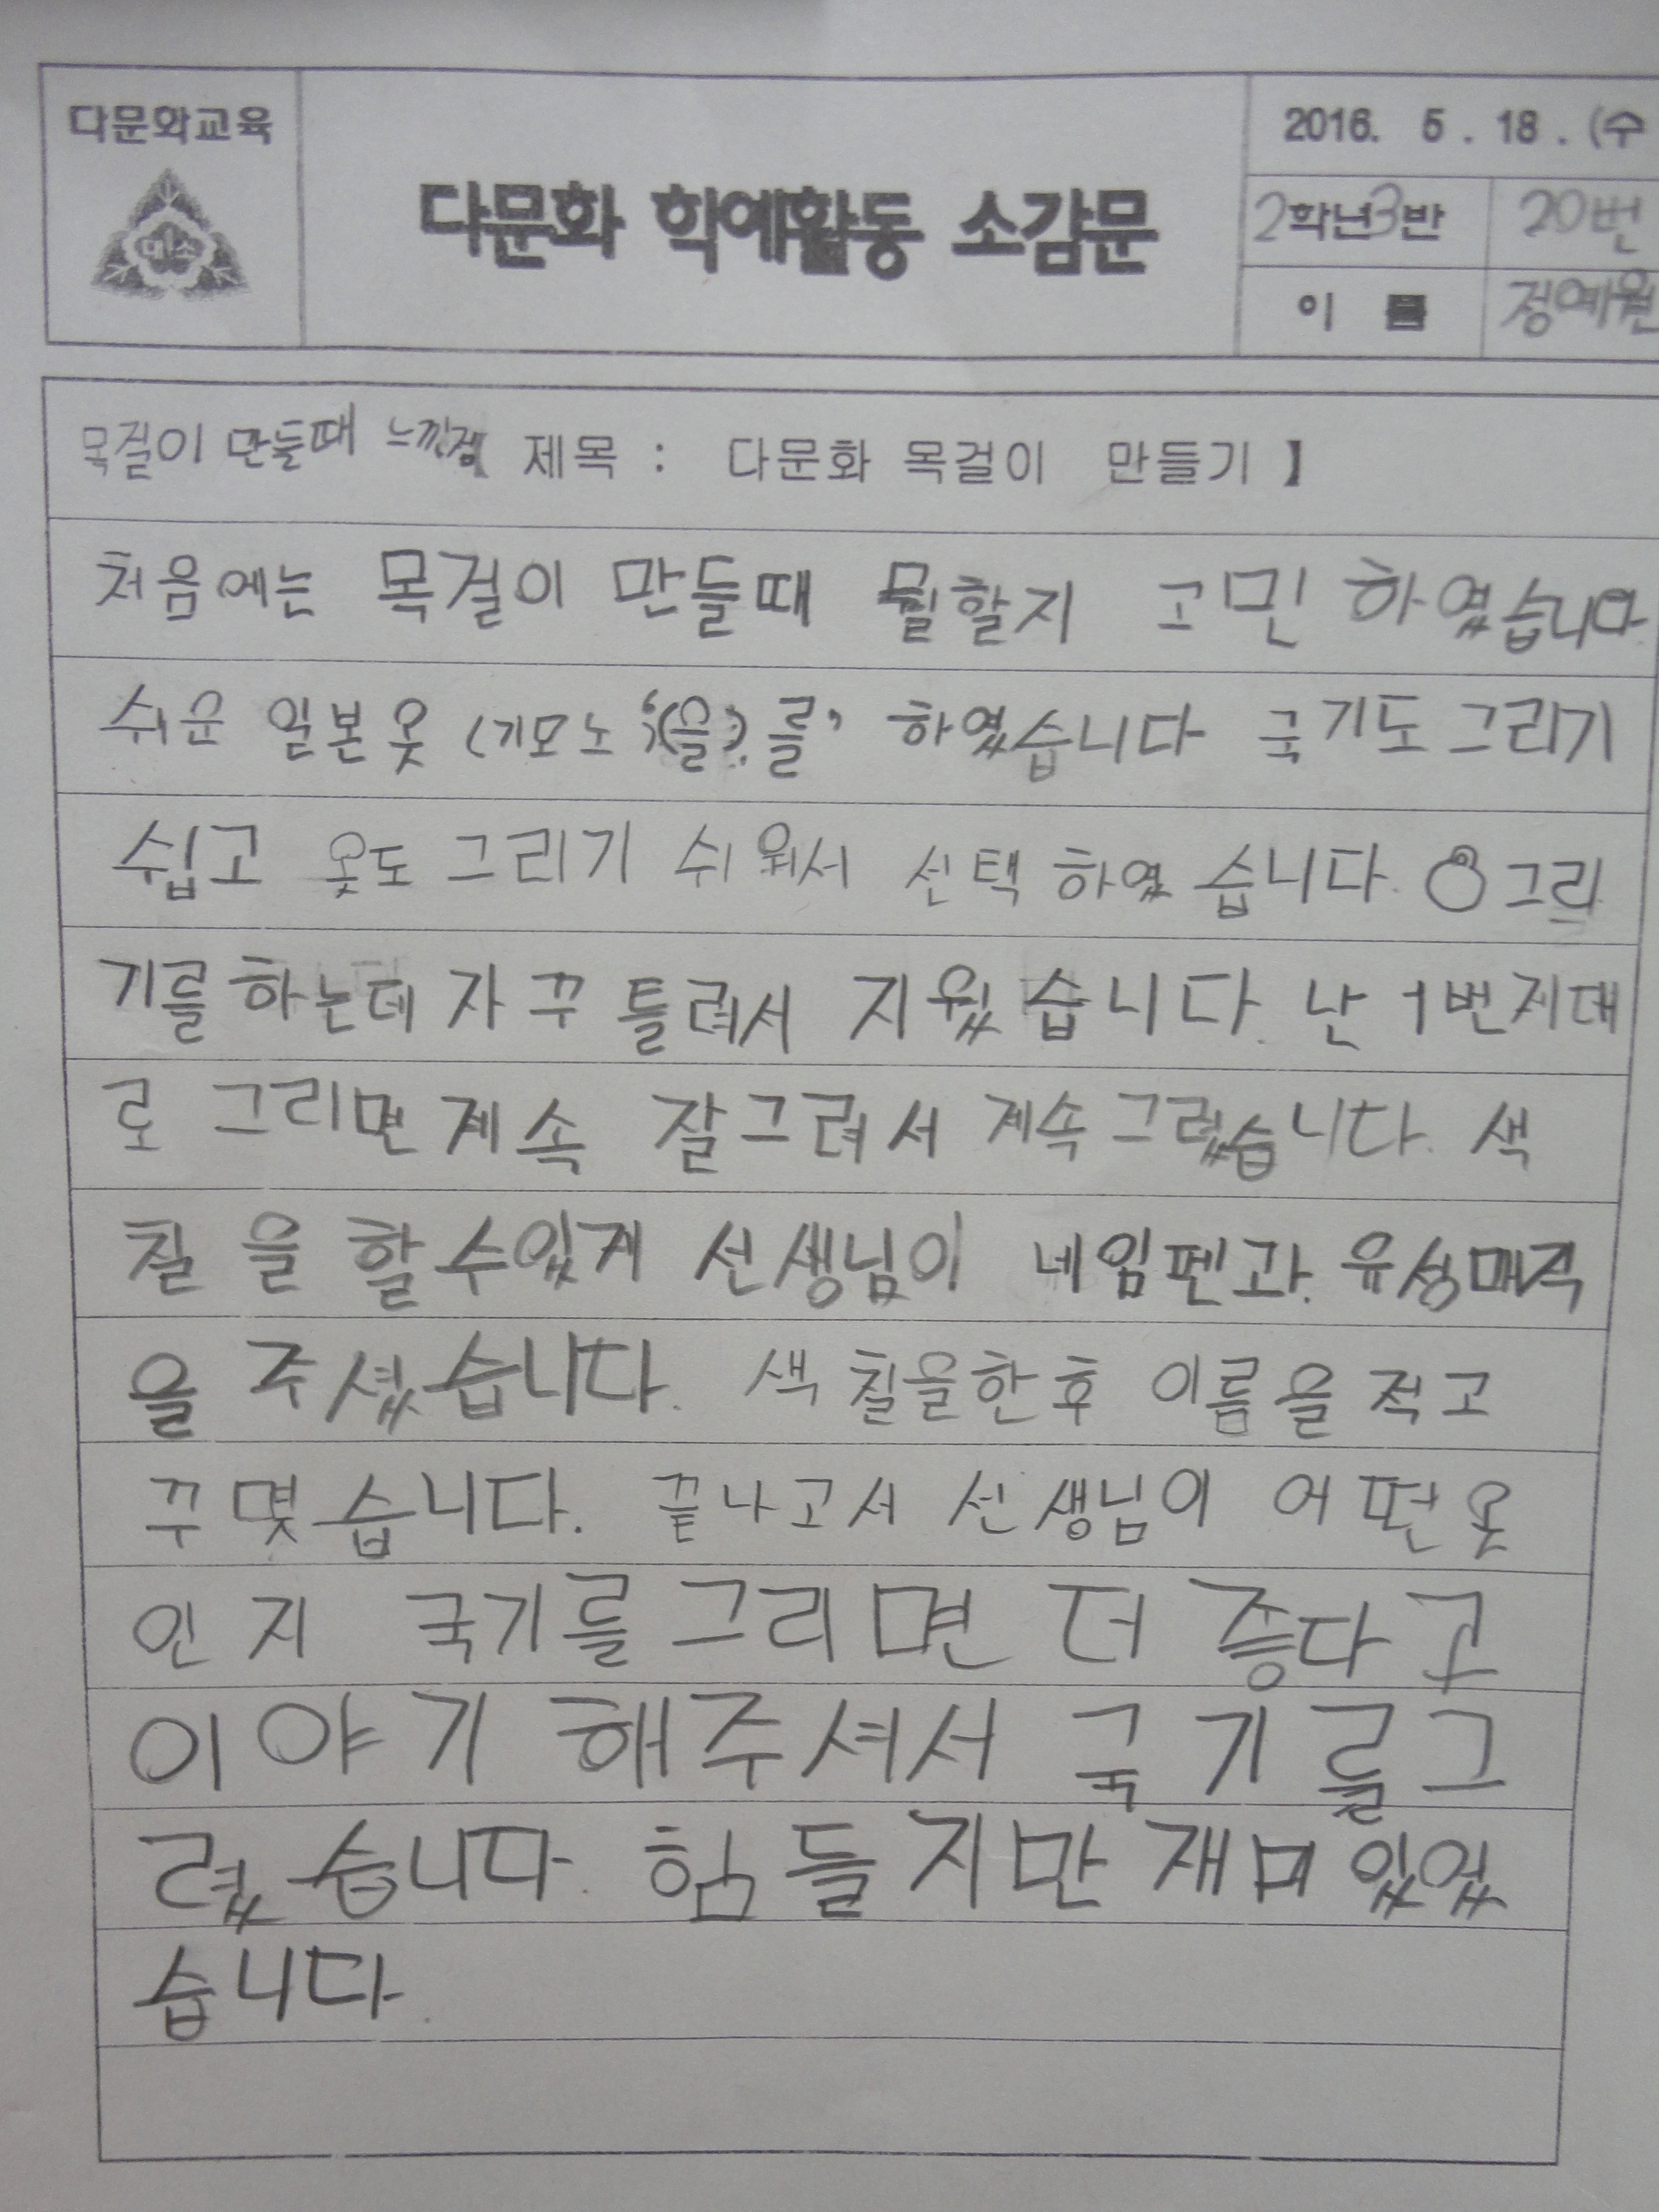 다문화교육
미소
다문화 학예활동 소감문
2016. 5 . 18 . (수
2학년3반 20번
이 름 정예원
목걸이 만들때 느낀점 제목 : 다문화 목걸이 만들기 】
처음에는 목걸이 만들때 뭘할지 고민 하였습니다
쉬운 일본옷 (기모노 '(을).를' 하였습니다 국기도그리기
쉽고 옷도 그리기 쉬워서 선택 하였습니다. 그리
기를 하는데 자꾸 틀려서 지웠습니다. 난 1번지대
로 그리면 계속 잘그려서 계속그렸습니다. 색
칠을 할수있게 선생님이 네임펜과. 유성매직
을 주셨습니다. 색칠을한후 이름을 적고
꾸몇습니다. 끝나고서 선생님이 어떤옷
인지 국기를그리면 더 좋다고
이야기 해주셔서 국기를그
렸습니다. 힘들지만재미있었
습니다.